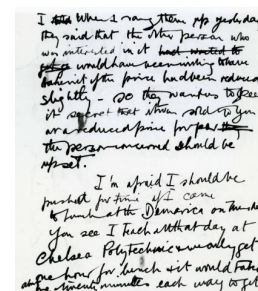 I When I rang them up yesterday
they said that the other person who
was interested in it had wanted to
would have been willing to have
it if the price had been reduced
slightly – so they want us to keep
it secret that it was sold to you
at a reduced price for
the person concerned should be
upset.
I'm afraid I should be
pushed for time if I came
to lunch at the D on
You see I teach all that day at
Chelsea Polytechnic & we only get
one hour for lunch & it would take
twenty minutes each way to get